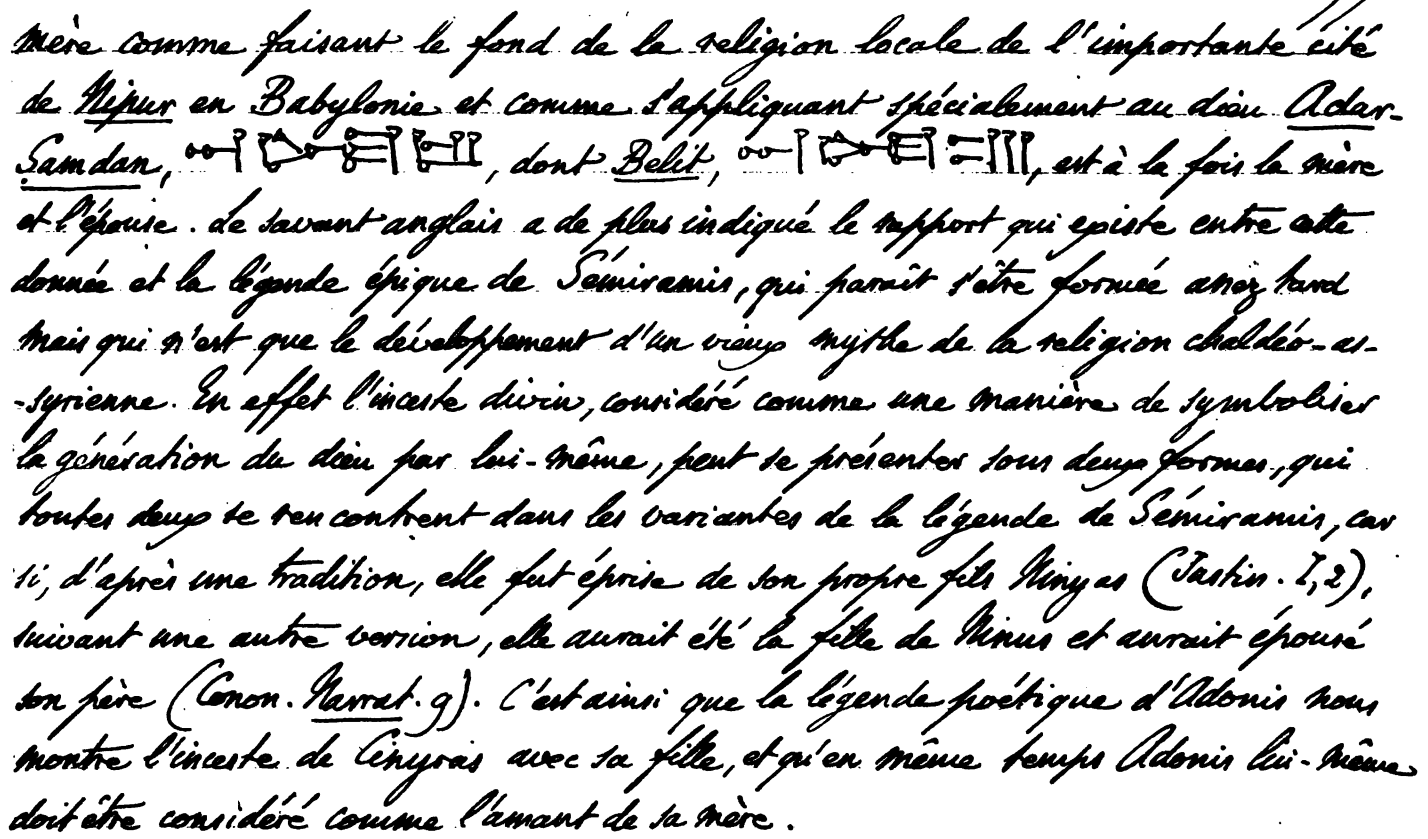 mère comme faisant le fond de la religion locale de l'importante cité
de Nipur en Babylonie et comme s'appliquant spécialement au dieu Adar-
Samdan, , dont Belit, , est à la fois la mère
et l'épouse. Le savant anglais a de plus indiqué le rapport qui existe entre cette
donnée et la légende épique de Sémiramis, qui paraît s'être formée assez tard
mais qui n'est que le développement d'un vieux mythe de la religion chaldéo-as-
-syrienne. En effet l'inceste divin, considéré comme une manière de symboliser
la génération du dieu par lui-même, peut se présenter sous deux formes, qui
toutes deux se rencontrent dans les variantes de la légende de Sémiramis, car
si, d'après une tradition, elle fut éprise de son propre fils Ninyas (Justin. I, 2),
suivant une autre version, elle aurait été la fille de Ninus et aurait épousé
son père (Conon. Narrat. 9). C'est ainsi que la légende poétique d'Adonis nous
montre l'inceste de Cinyras avec sa fille, et qu'en même temps Adonis lui-même
doit être considéré comme l'amant de sa mère.